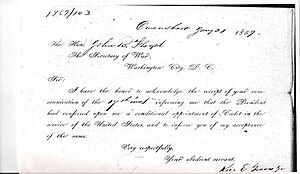 1759/103
1859.
The Hon. John B. Floyd
The Secretary of War,
Washington City, D. C.
Sir:
I have the honor to acknowledge the receipt of your com-
munication of the 17th inst informing me that the President
had conferred upon me a conditional appointment of Cadet in the
service of the United States, and to inform you of my acceptance
of the same.
Very respectfully,
Your obedient servant,